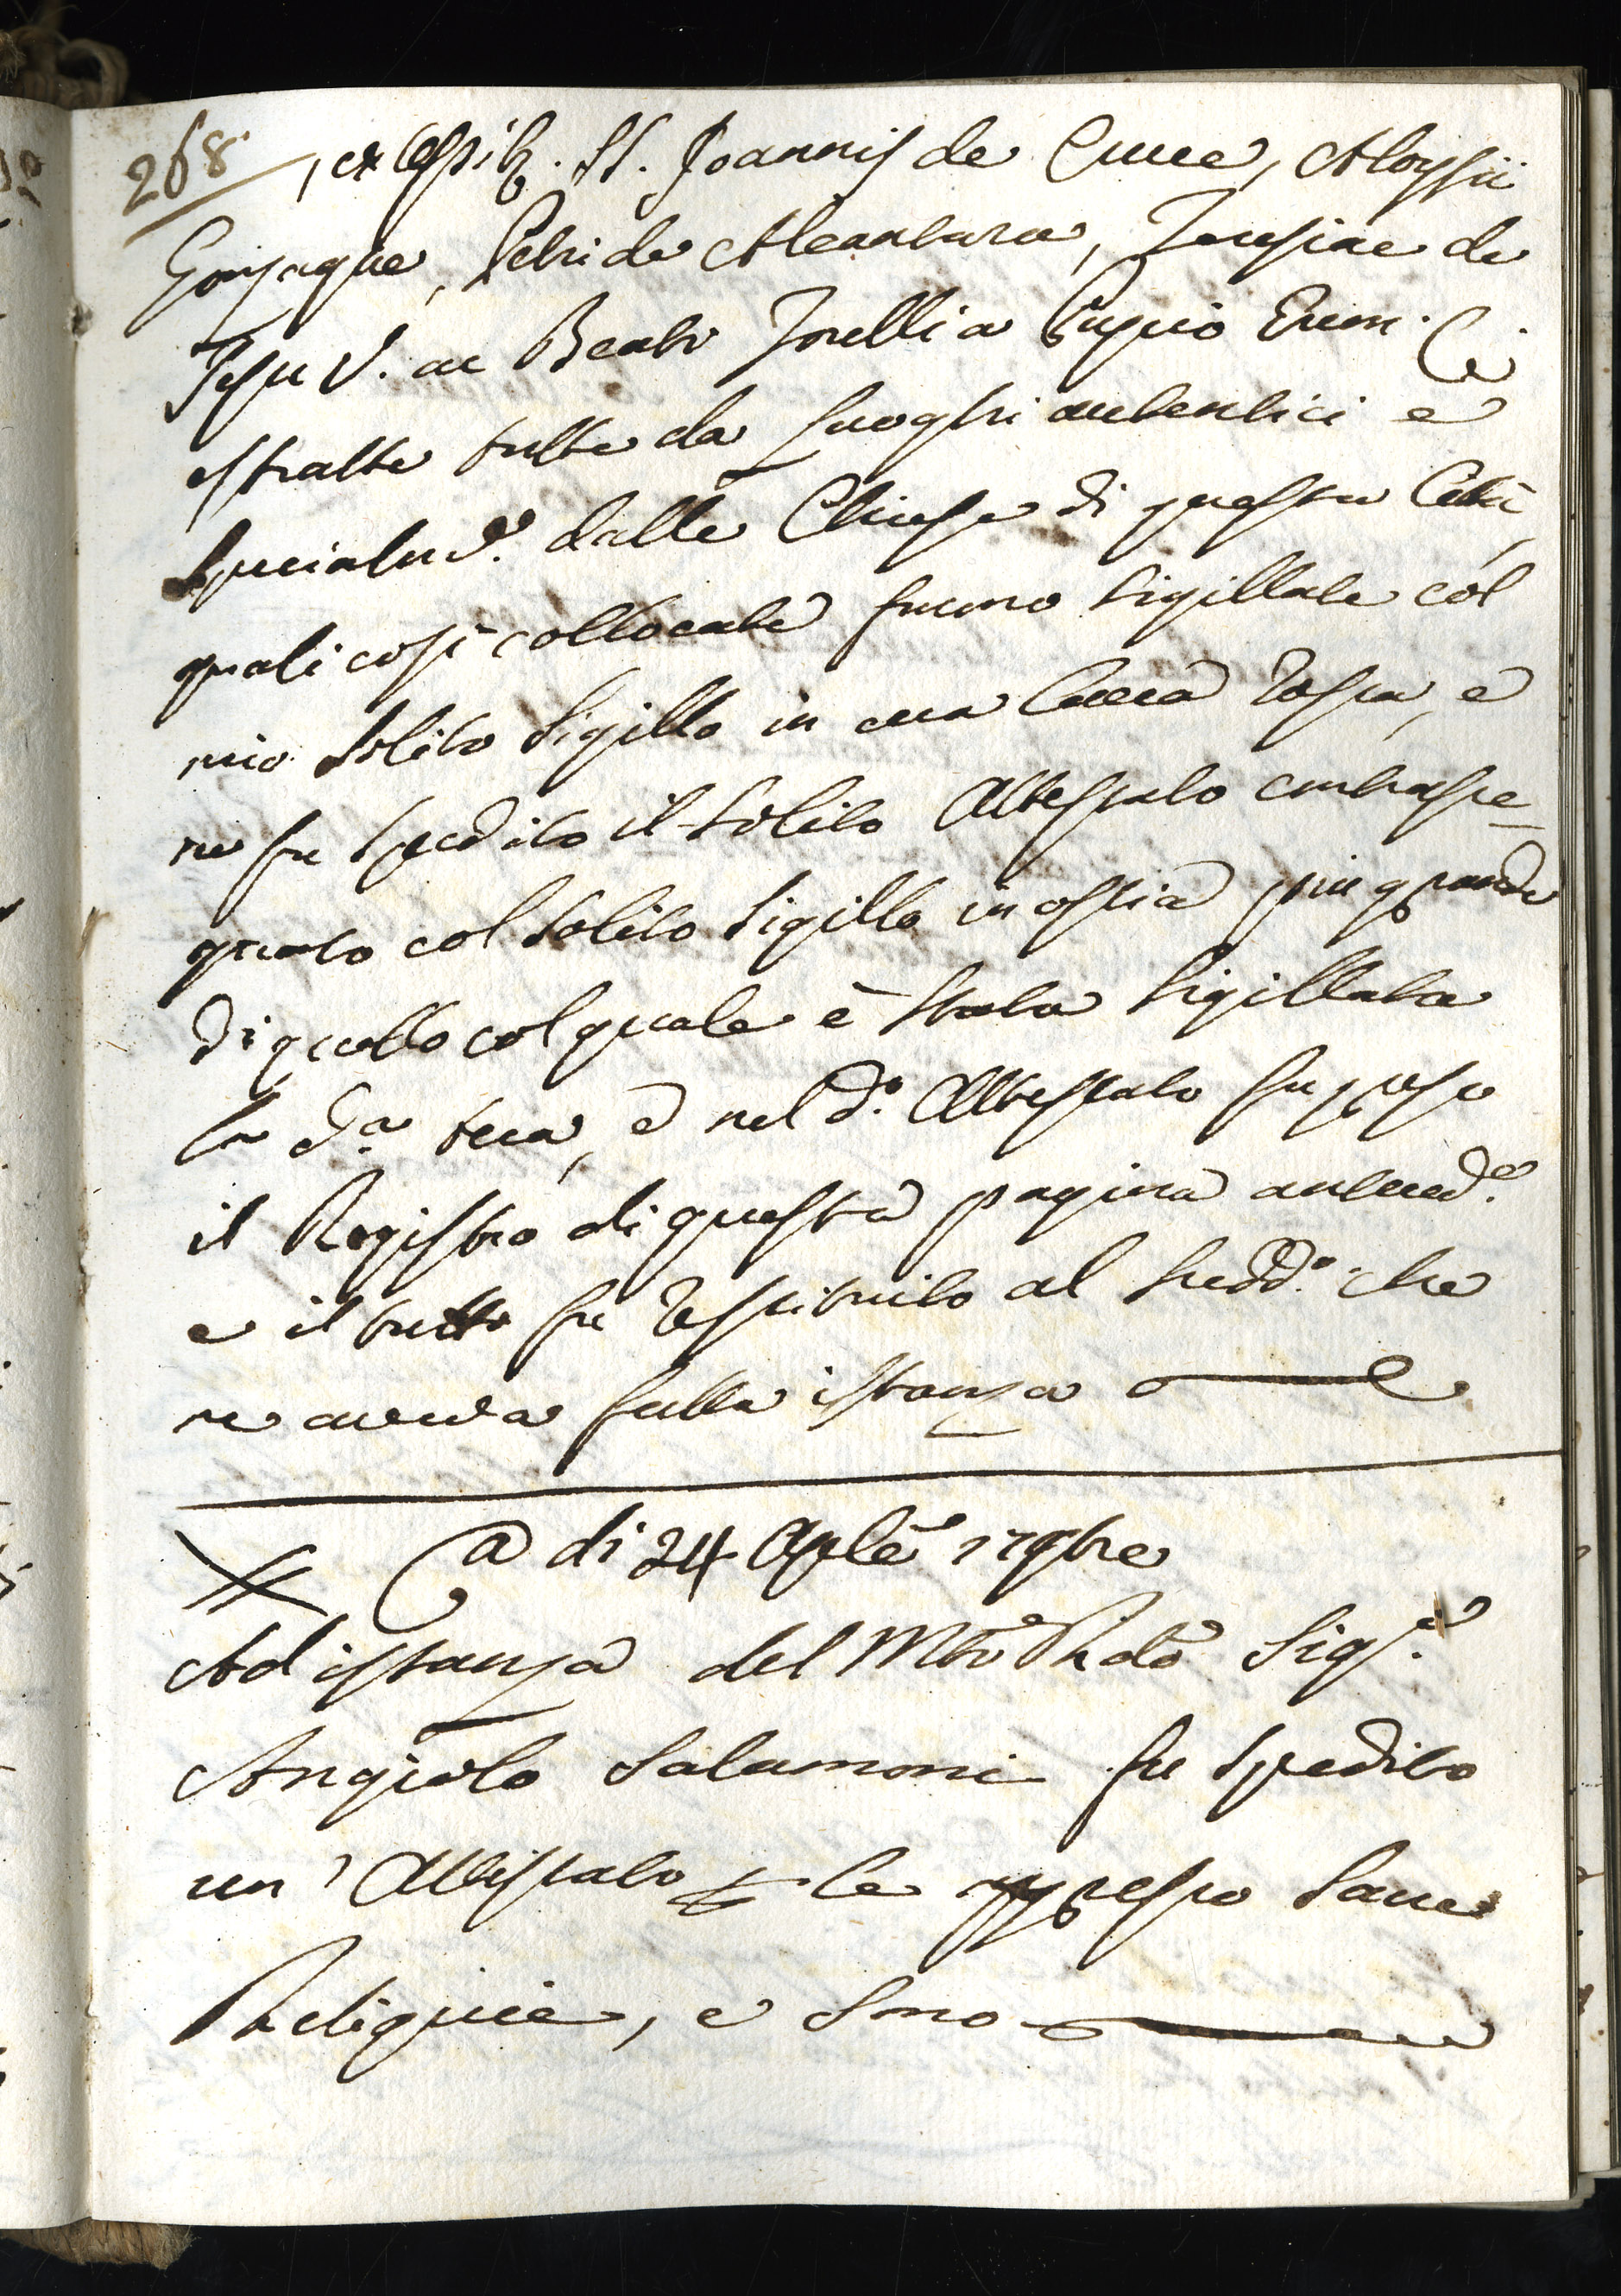 268
, ex Ossib. SS. Joannis de Cruce, Aloysii
Gonzague, Petri de Alcantara, Teresiae de
Jesu V. ac Beati Torelli a Puppio Erem.
estratte tutte da Luoghi autentici e
specialm.e dalle Chiese di questa Città
quali così collocate furono sigillate col
mio solito Sigillo in cera Lacca rossa, e
ne fu spedito il solito Attestato contrasse-
gnato col solito Sigillo in ostia piu grande
di quello col quale è stata sigillata
la d.a teca, e nel d.o Attestato fu preso
il Registro di questa pagina anteced.e
e il tutto fu restituito al sudd.o che
ne aveva fatta istanza
A di 24 Aple
Ad istanza del Mto Rdo Sig.r
Angiolo Salamoni fu spedito
un' Attestato le appresso Sacre
Reliquie, e sono